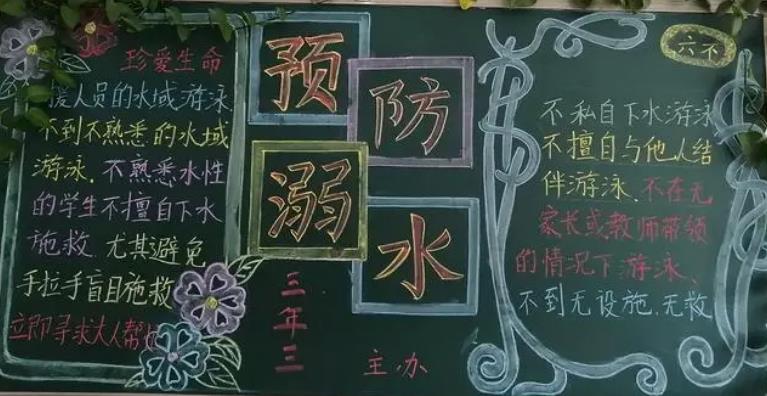 珍爱生命
援人员的水域游泳
不到不熟悉的水域
游泳.不熟悉水性
的学生不擅自下水
施救.尤其避免
手拉手盲目施救
立即寻求大人帮
预
防
溺
水
三年三
主办
六不
不私自下水游泳
不擅自与他人结
伴游泳.不在无
家长或教师带领
的情况下游泳、
不到无设施.无救